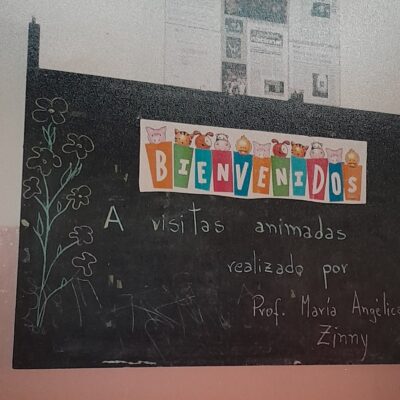 BIENVENIDOS
A visitas animadas
realizado por
Prof. María Angélica
Zinny